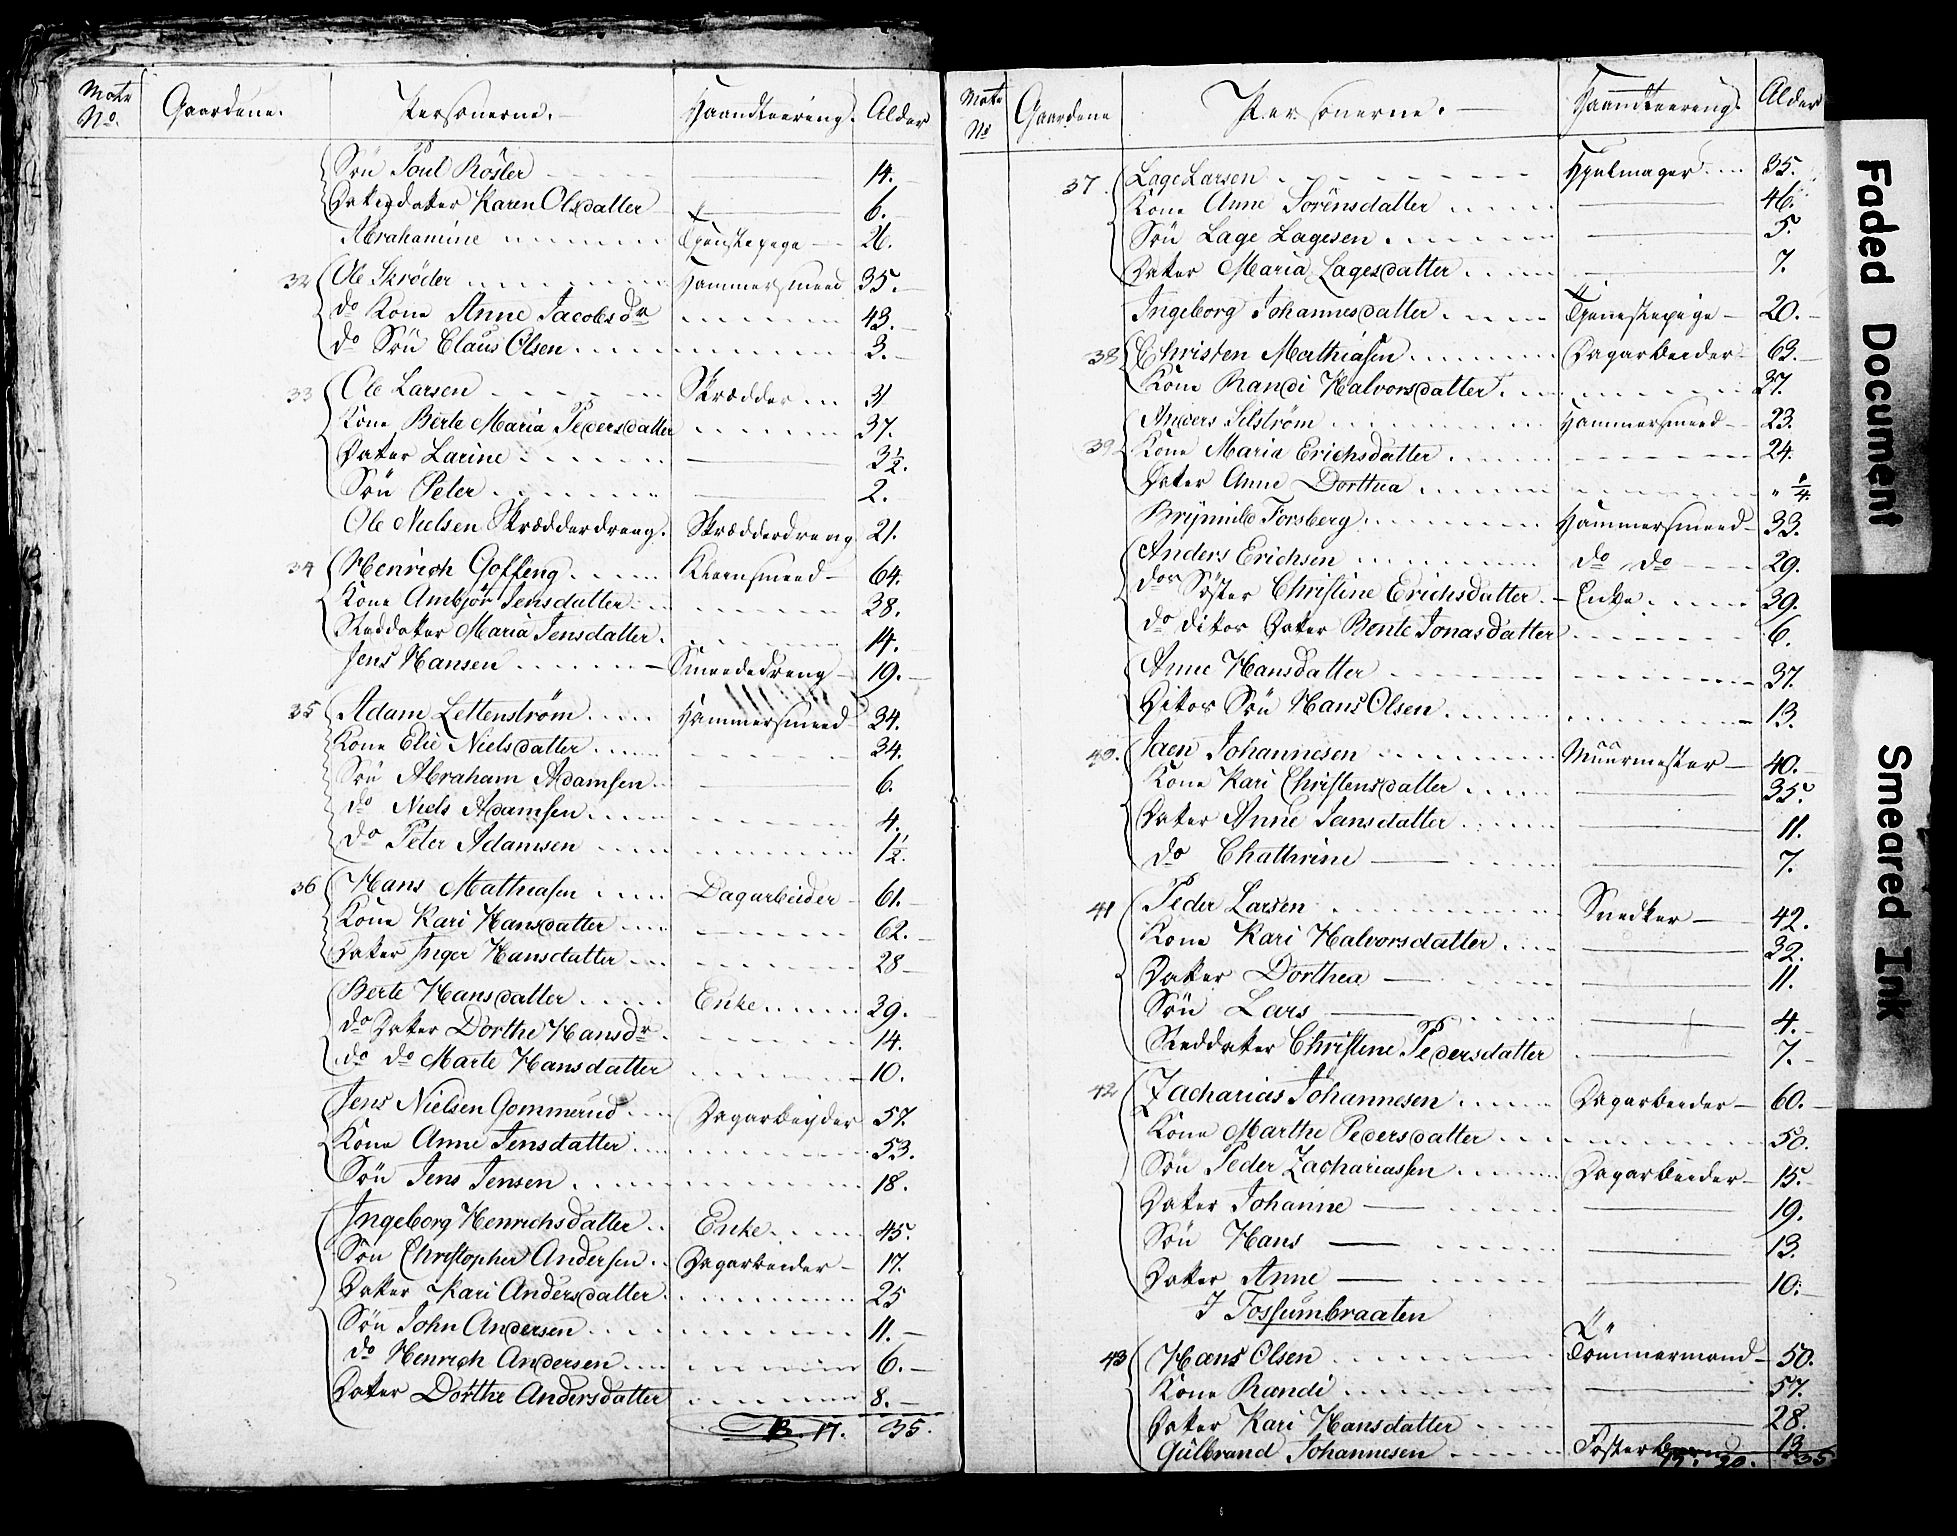 Matr No. Gaardene. Personerne. Haandteering. Alder
Søn Poul Røsler 14.
Datterdatter Karen Olsdatter 6.
Abrahamine Tjenstepige 26.
32 Ole Skrøder Hammersmeed 35.
do Kone Anne Jacobsdr 43.
do Søn Claus Olsen 3.
33 Ole Larsen Skrædder 31
Kone Berte Maria Pedersdatter 37.
Datter Larine 3½.
Søn Peter 2.
Ole Nielsen Skrædderdreng. Skrædderdreng 21.
34 Henrich Goffeng Kleensmeed 64.
Kone Ambjør Jensdatter 38.
Steddatter Maria Jensdatter 14.
Jens Hansen Smeededreng 19.
35 Adam Lettenstrøm Hammersmeed 34.
Kone Elie Nielsdatter 34.
Søn Abraham Adamsen 6.
do Niels Adamsen 4.
do Peter Adamsen 1½.
36 Hans Mathiasen Dagarbeider 61.
Kone Kari Hansdatter 62.
Datter Inger Hansdatter 28
Berte Hansdatter Enke 39.
do Datter Dorthe Hansdr 14.
do do Marte Hansdatter 10.
Jens Nielsen Gommerud Dagarbeijder 57.
Kone Anne Jensdatter 53.
Søn Jens Jensen 18.
Ingeborg Henrichsdatter Enke 45.
Søn Christopher Andersen Dagarbeider 17.
Datter Kari Andersdatter 25
Søn John Andersen 11.
do Henrich Andersen 6.
Datter Dorthe Andersdatter 8.
17. 35.
Matr No Gaardene Personerne. Haandteering. Alder
37. Lage Larsen Hjulmager 35.
Kone Anne Sørensdatter 46.
Søn Lage Lagesen 5.
Datter Maria Lagesdatter 7.
Ingeborg Johannesdatter Tjenestepige 20.
38 Christen Mathiasen Dagarbeider 63.
Kone Randi Halvorsdatter 37.
Anders Selstrøm Hammersmeed 23.
39 Kone Maria Erichsdatter 24.
Datter Anne Dorthea " ¼
Brijnnild Forsberg Hammersmeed 33.
Anders Erichsen do do 29.
dos Søster Christine Erichsdatter Enke 39.
do ditos Datter Bente Jonasdatter 6.
Anne Hansdatter 37.
Ditos Søn Hans Olsen 13.
40. Jaen Johannesen Muurmester 40.
Kone Kari Christensdatter 35.
Datter Anne Jansdatter 11.
do Chathrine 7.
41 Peder Larsen Snedker 42.
Kone Kari Halvorsdatter 32.
Datter Dorthea 11.
Søn Lars 4.
Steddatter Christine Pedersdatter 7.
42 Zacharias Johannesen Dagarbeider 60.
Kone Marthe Pedersdatter 50.
Søn Peder Zachariassen Dagarbeider 15.
Datter Johanne 19.
Søn Hans 13.
Datter Anne 10.
I Fossumbraaten
43 Hans Olsen Tømmermand 50.
Kone Randi 57.
Datter Kari Hansdatter 28.
Gulbrand Johannesen 13
20. 35
Faded Document
Smeared Ink